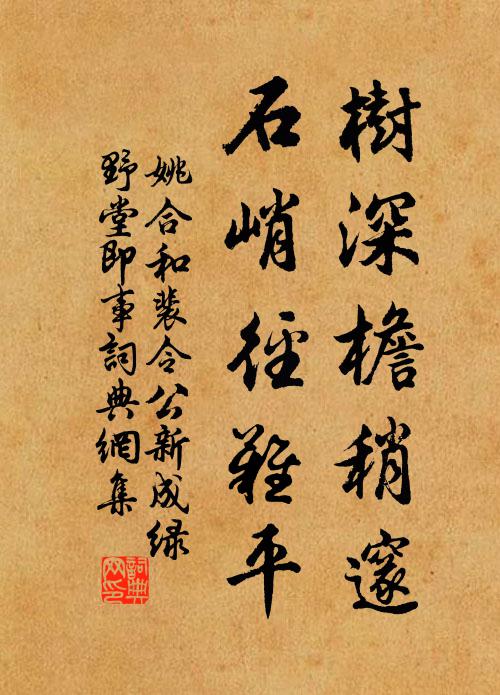 樹深檐稍邃
石峭徑難平
姚合和裴令公新成绿
野堂即事詞典網集
詞典网印